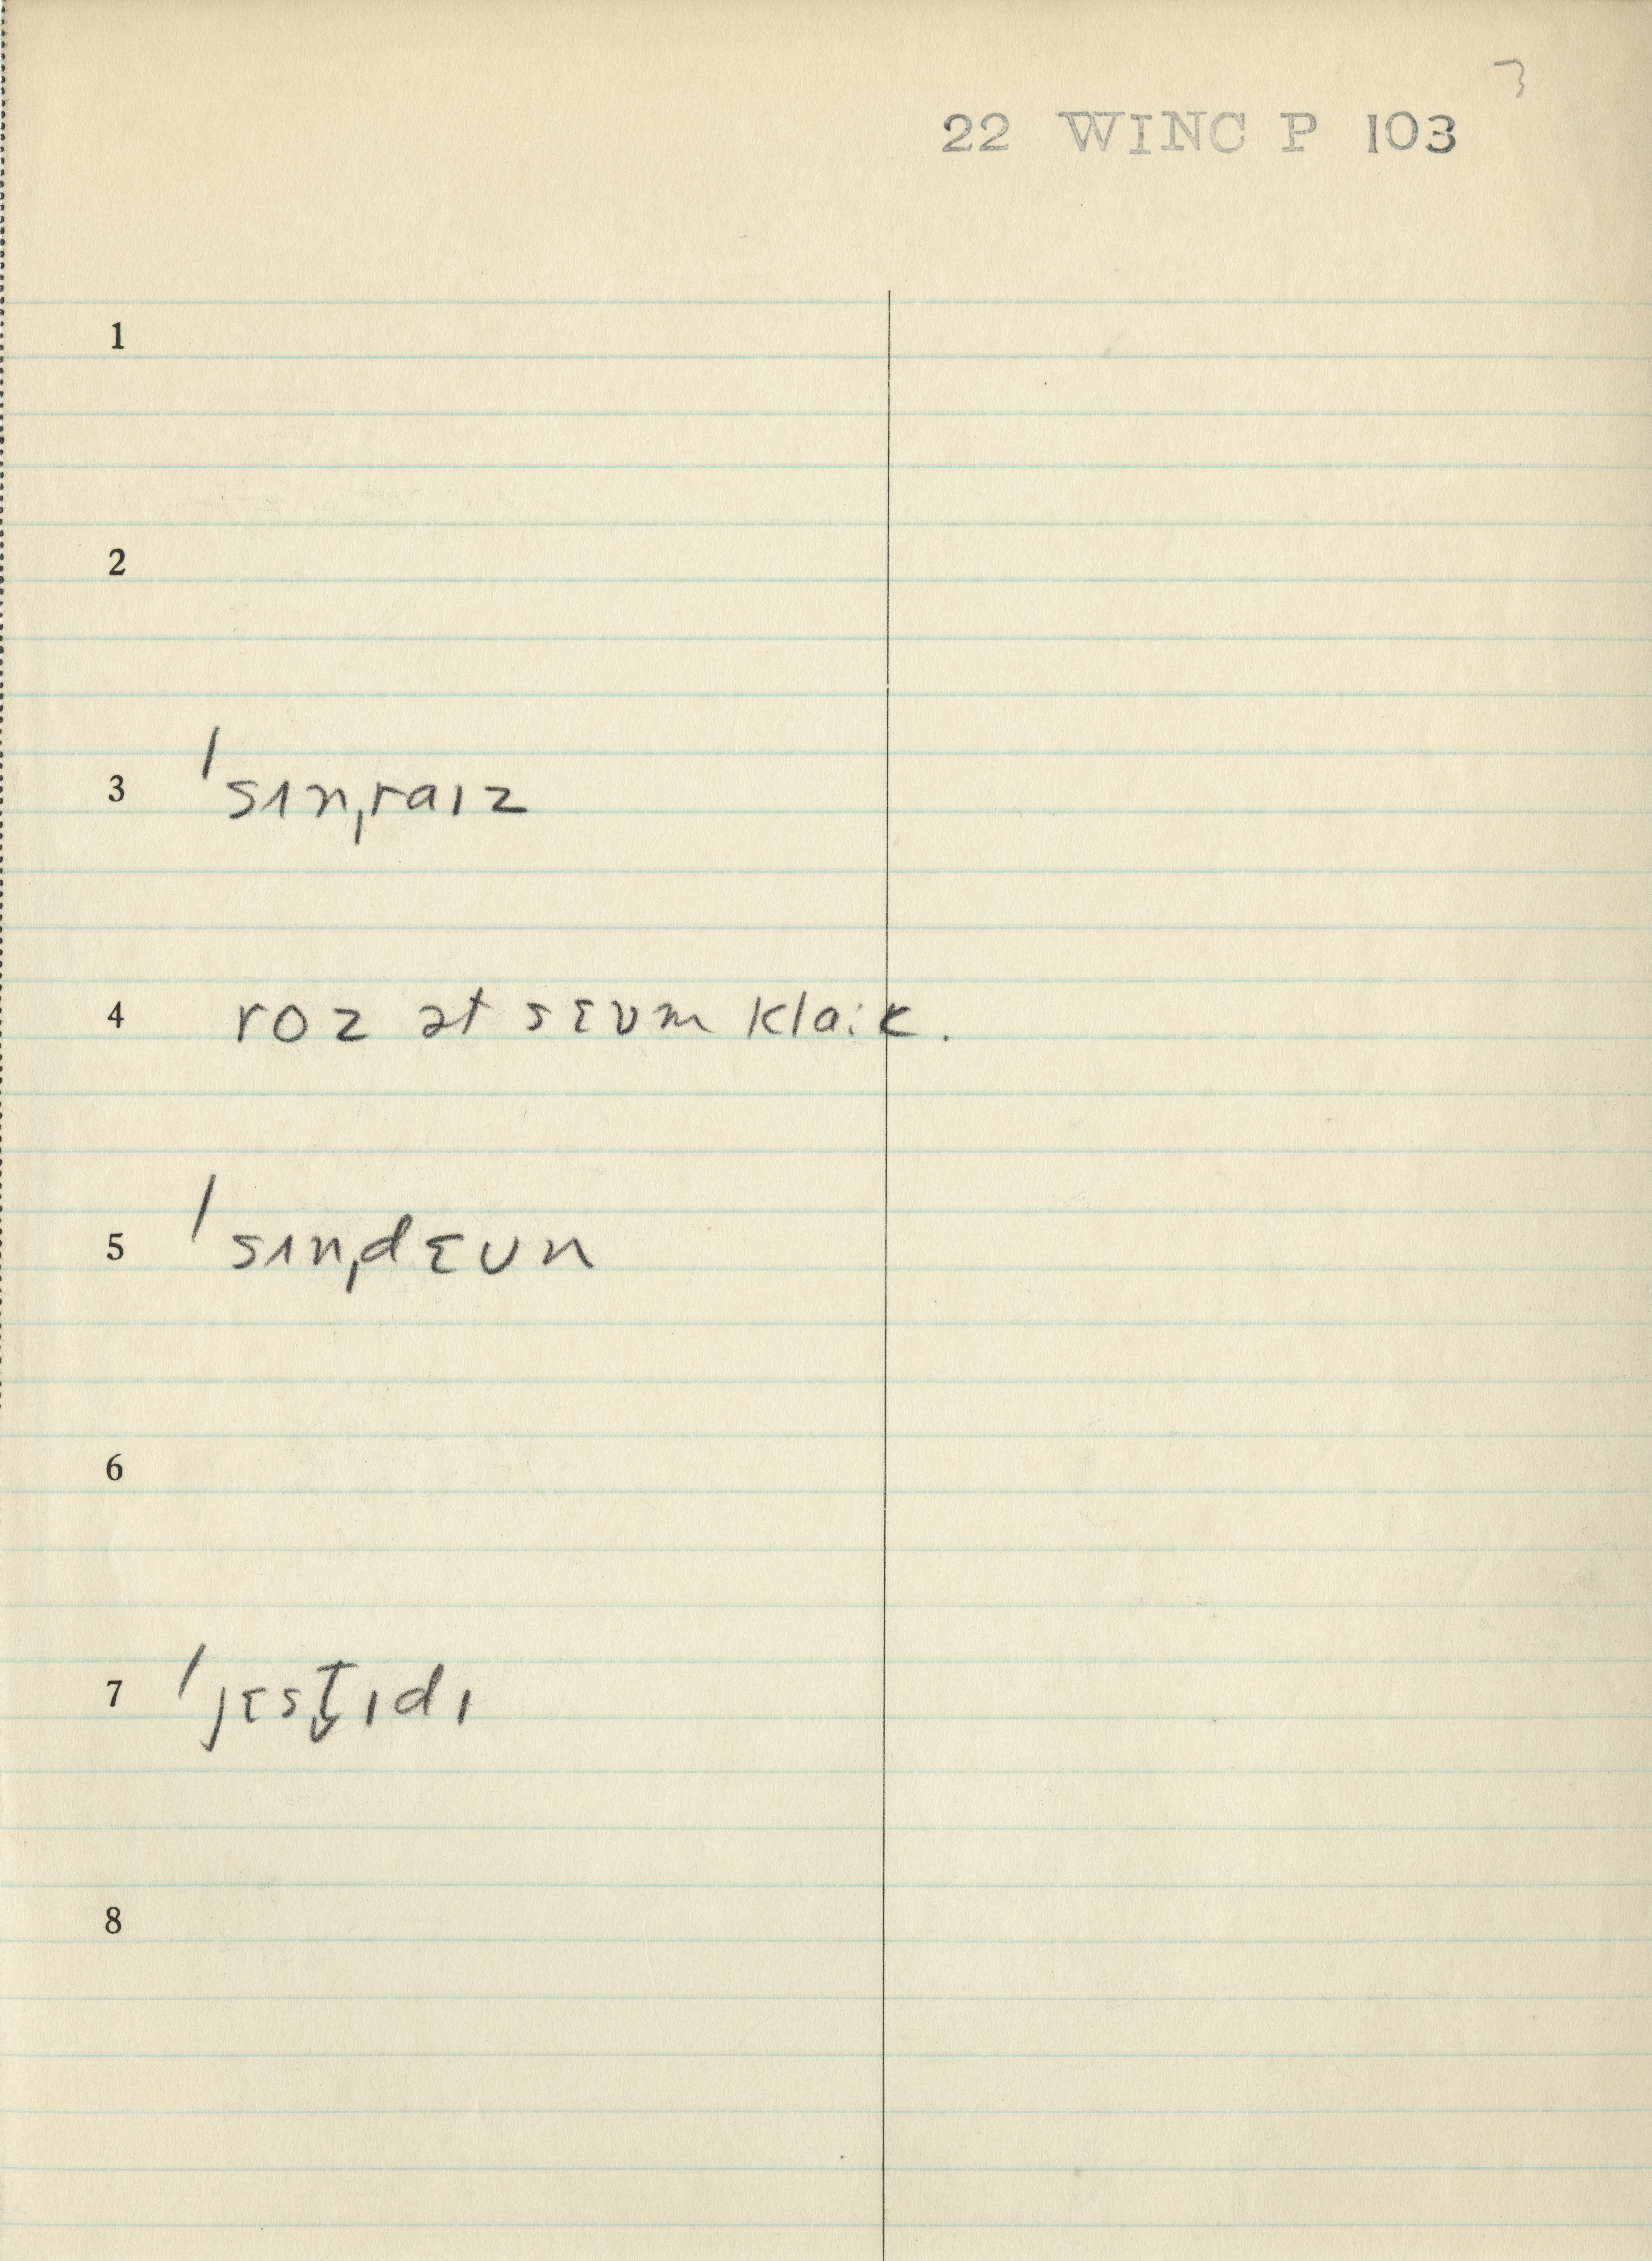 3
22 WINC P 103
1
2
3 ˈsɪnˌraɪz
4 roz ət sɛvm klaˑk.
5 ˈsɪnˌdɛʊn
6
7 ˈjɛst̬ɪdɪ
8